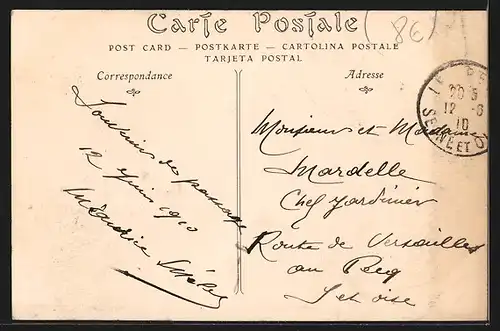 Carte Postale
(8€)
POST CARD — POSTKARTE — CARTOLINA POSTALE
TARJETA POSTAL
Correspondance
Adresse
20 5
12 -6
10
SEINE ET O
Souvenir de passage
12 Juin 1910
Maurice
Monsieur et Madame
Mardelle
Chef Jardinier
Route de Versailles
au Pecq
S et oise